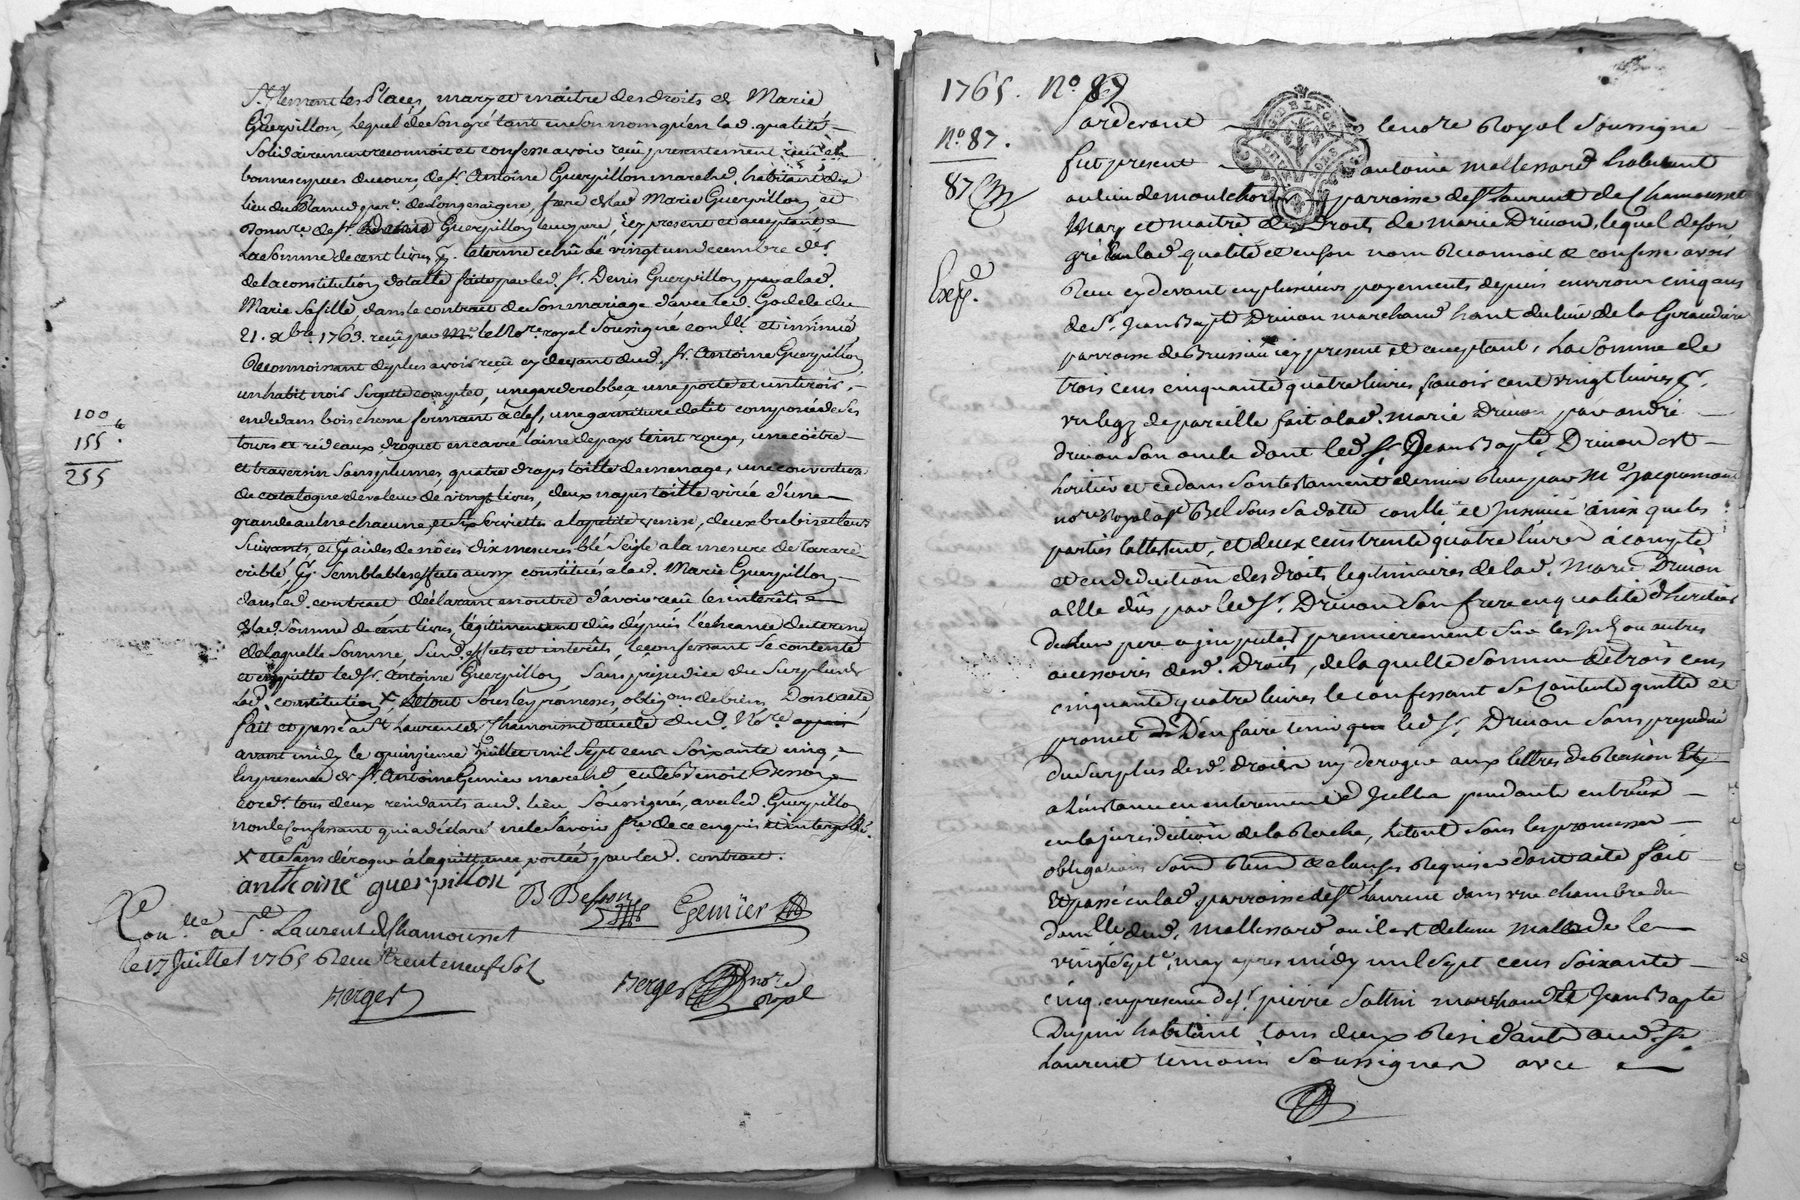 St Clement les Places, mary et maitre des droits de Marie
Guerpillon, lequel de son gré tant en son nom qu'en lad. qualité
solidairement reconnoit et confesse avoir reçû presentement
bonnes especes du cours, de sr. Antoine Guerpillon march<sup>d</sup>. habitant du
lieu du par<sup>e</sup>. de Longessaigne, frere de lad. Marie Guerpillon, et
de sr. Guerpillon leur pere, icy present et acceptant
La somme de cent livres le terme echû le vingt un decembre der.
de la constitution dotalle faite par led. sr. Denis Guerpillon a lad.
Marie sa fille, dans le contrat de son mariage d'avec led. Godde du
21. xbre 1763. reçû par le No<sup>re</sup> royal soussigné conllé et insinué
Reconnoissant de plus avoir reçû cy devant dud. sr. Antoine Guerpillon
un habit noir complet, une garderobbe a une porte et un tiroir
en dedans bois chesne fermant à clef, une garniture de lit composée de ses
tours et rideaux droguet en carré laine de pays teint rouge, une coitre
et traversin sans plumes, quatre draps toille de menage, une couverture
de catalogne de valeur de vingt livres, deux napes toille virée d'une
grande aulne chacune, et six serviettes a la petite venise, deux brebis et leurs
suivants, et aides de nôces dix mesures blé seigle a la mesure de Tarare
criblé, semblables effets aussy constitués a lad. Marie Guerpillon
dans led. contrat déclarant en outre d'avoir reçû les interêts
de lad. somme de cent livres, légitimement dûs depuis l'echeance du terme
de laquelle somme, susd. effets et interêts, le confessant se contente
et quitte led. sr. Antoine Guerpillon sans prejudice du surplus de
lad. constitution X, le tout sous les promesses, oblig<sup>ons</sup> de biens, Dont acte
fait et passé a st Laurent de Chamousset etude dud. No<sup>re</sup>
avant midy le quinzieme Juillet mil sept cens soixante cinq,
en presence de sr. Antoine Gemier march<sup>d</sup>, et de Benoit Besson
cord<sup>r</sup>. tous deux residants aud. lieu soussignés, avec led. Guerpillon
non le confessant qui a déclaré ne le savoir f<sup>re</sup> de ce enquis et interpellé.
X et sans déroger à la quittance portée par led. contrat.
100
155 #
255
anthoine guerpillon B Besson Gemier
Con<sup>llé</sup> a St. Laurent de Chamousset
le 17 Juillet 1765 Reçu trente neuf sol
Berger
Berger no<sup>re</sup> Royal
1765. N° 87
N° 87.
87
Exp<sup>é</sup>.
Pardevant le no<sup>re</sup> Royal Soussigné
fut present antoine mallessard habitant
au lieu de parroisse de St Laurent de Chamousset
Mary et maitre des Droits de marie Drivon, lequel de son
gré en lad. qualité et en son nom Reconnoit et confesse avoir
Reçu cy devant en plusieurs payements depuis environ cinq ans
de Sr. Jean Bapte Drivon marchand hant du lieu de la Giraudière
parroisse de Brussieu icy present et acceptant, La Somme de
trois cens cinquante quatre livres sçavoir cent vingt livres
un legz de pareille fait à lad. marie Drivon par andré
drivon son oncle dont led. Sr. Jean Bapte Drivon est
heritier et ce dans son testament dernier Reçu par M<sup>e</sup> Jacquemont
no<sup>re</sup> Royal Bel sous sa datte conllé et insinué ainsi que les
parties l'attestent, et deux cens trente quatre livres à compte
et en deduction des droits legitimaires de lad. marie Drivon
a elle dûs par led. Sr. Drivon son frere en qualité d'heritier
de leur pere a imputer premierement sur les interets ou autres
accessoires desd. droits, de laquelle somme de trois cens
cinquante quatre livres le confessant se contente quitte et
promet d'en faire tenir quitte led. Sr. Drivon Sans prejudice
du surplus desd. droits ny deroger aux lettres de Rescision et
a l'instance en enterinement d'icelles pendante entr'eux
en la jurisdiction de la Roche, le tout sous les promesses
obligations soumd. Renond et clauses Requises dont acte fait
et passé en lad. parroisse de St Laurent dans une chambre du
domlle dud. mallessard ou il est detenu malade le
vingt sept<sup>e</sup>. may apres midy mil sept cens soixante
cinq. en presence de Sr. pierre marchand et Jean Bapte
Dupuis habitant tous deux Residants aud. St
Laurent temoins soussignés avec